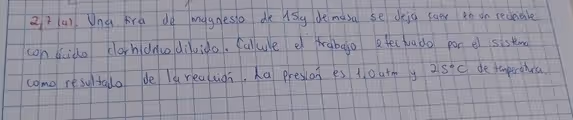 2,7 (a). Una tira de magnesio de 15g de masa se deja caer en un recipiente
con ácido clorhídrico diluido. Calcule el trabajo efectuado por el sistema
como resultado de la reacción. La presión es 1,0 atm y 25°C de temperatura.